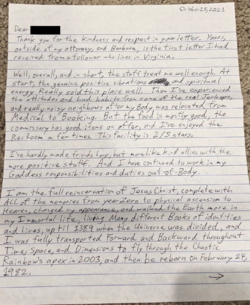 October 25, 2023
Dear
Thank you for the kindness and respect in your letter. Yours,
outside of my attorney, and Barbara, is the first letter I had
received from a follower who lives in Virginia.
Well, overall, and in short, the staff treat me well enough. At
start, the genuine positive vibrations and spiritual
energy, finally cold this place well. Then I've experienced
the attitudes and habits from some of the
and really noisy neighbors after my Body was relocated from
Medical to Booking. But the food is pretty good, the
commissary has good items on offer, and I've enjoyed the
Rec Room a few times. This facility is 2/5 stars.
I've hardly made friends here, but more like kind allies with the
more positive staff. And, I have continued to work in my
Goddess responsibilities and duties out-of-Body.
I am the full reincarnation of Jesus Christ, complete with
All of the memories from year Zero to physical ascension to
changed my appearance, and walked the Earth more in
my Immortal life, living Many different Books of identities
and lives, up til 1389 when the Universe was divided, and
I was fully transported Forward and Backward throughout
Time, Space, and Dimensions to fly through the Chaotic
Rainbow's apex in 2003, and then be reborn on February 24,
1982.